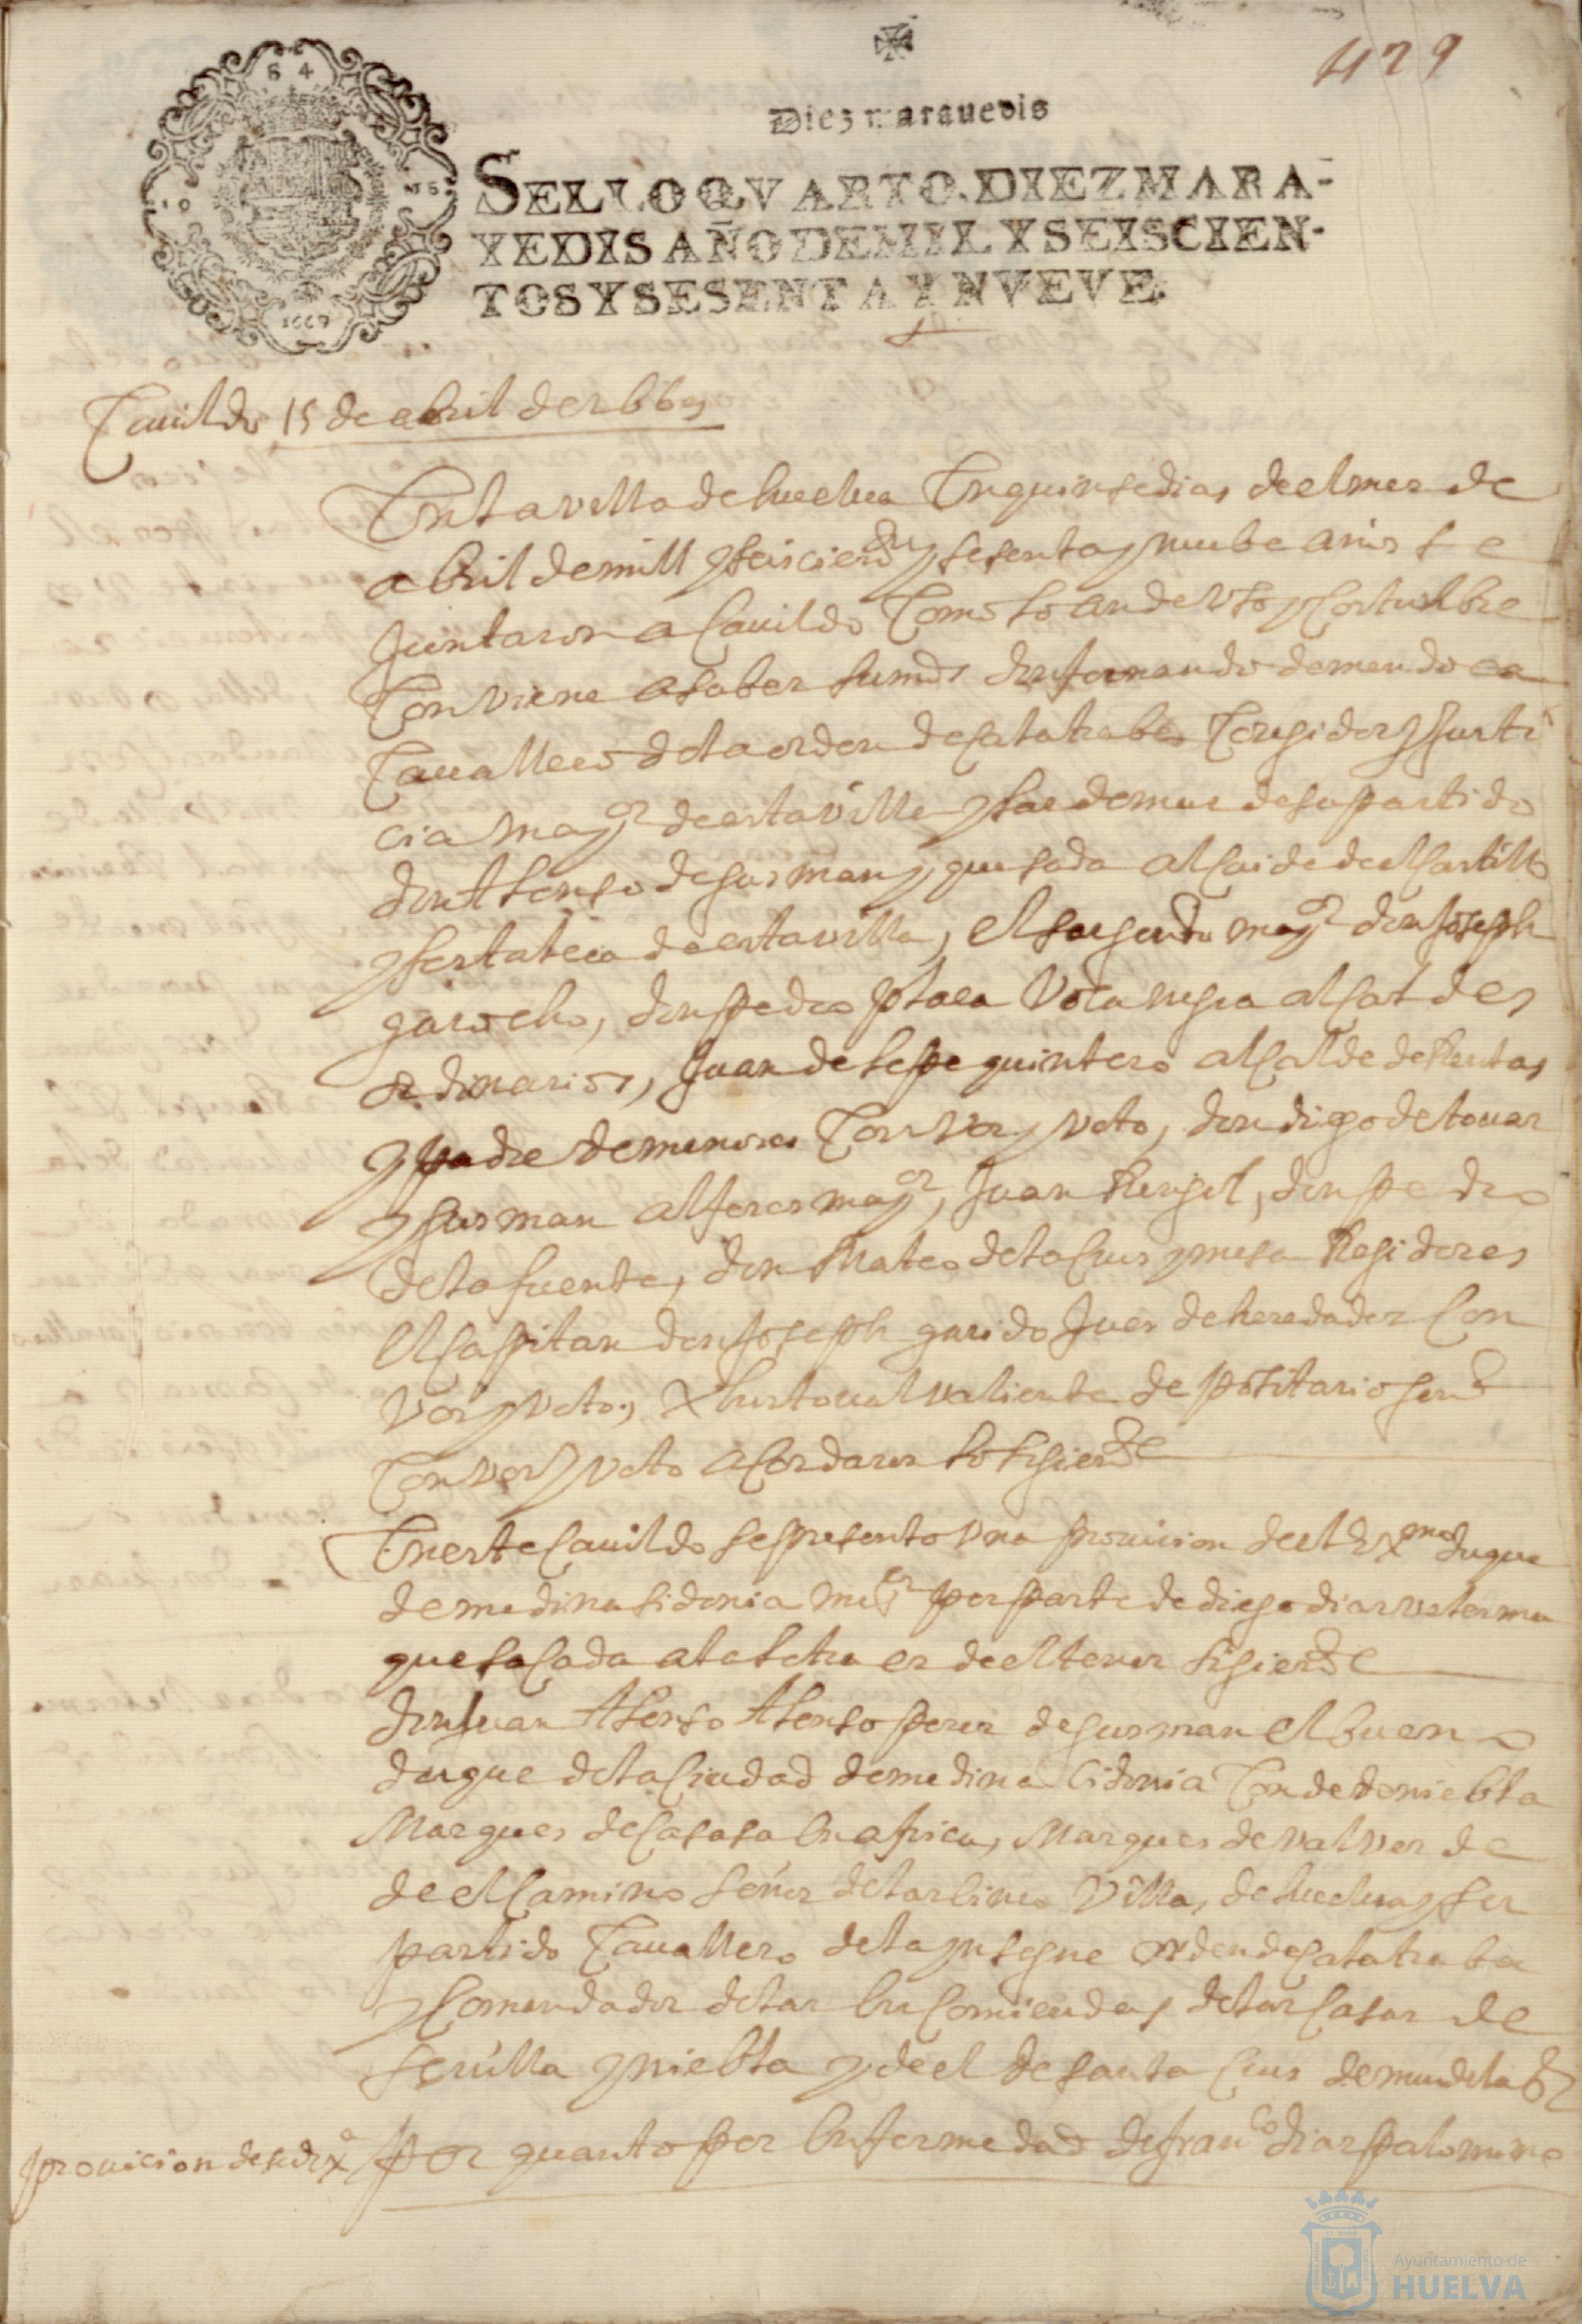 479
S 4
10 MS
1669
Diez marauedis
SELLO QVARTO, DIEZ MARA-
VEDIS AÑO DE MIL Y SEISCIEN-
TOS Y SESENTA Y NVEVE.
Cauildo 15 de abril de 1669
En la villa de huelua En quinse dias de el mes de
abril de mill y seiscientos y sesenta y nuebe años se
Juntaron a Cauildo Como lo an de Vso y Costunbre
Conviene a saber su md don fernando de mendoca
Cauallero de la orden de Calatraba Coregidor y Justi
cia mayor de esta villa y las demas de su partido
don Alonso de gusman y quesada alcaide de el Castillo
y fortaleca de esta villa, el sargento mayor don Joseph
garocho, don pedro placa Vocanegra alcaldes
ordinarios, Juan de lepe quintero alcalde de Rentas
y padre de menores Con Vos y voto, don diego de touar
y gusman alferes mayor, Juan Rengel, don pedro
de la fuente, don Mateo de la Crus y mesa Regidores
el Capitan don Joseph garido Jues de heredades Con
Vos y Voto, Xhristoual valiente depositario genl
Con vos y voto acordaron lo sigiente
En este Cauildo se presento vna prouicion de el exmo duque
de medina sidonia mi sr por parte de diego dias
que sacada a la letra es de el tenor sigiente
don Juan Alonso Alonso peres de gusman el bueno
duque de la Ciudad de medina Cidonia Conde de niebla
Marques de Casasa en africa, Marques de valverde
de el Camino señor de las cinco Villas, de huelua y su
partido Cauallero de la ynsigne orden de Calatraba
y Comendador de las encomiendas de las Casas de
seuilla y niebla y de el de santa Crus de mudela &
prouicion de su exa por quanto por enfermedad de franco dias palomino
Ayuntamiento de
HUELVA